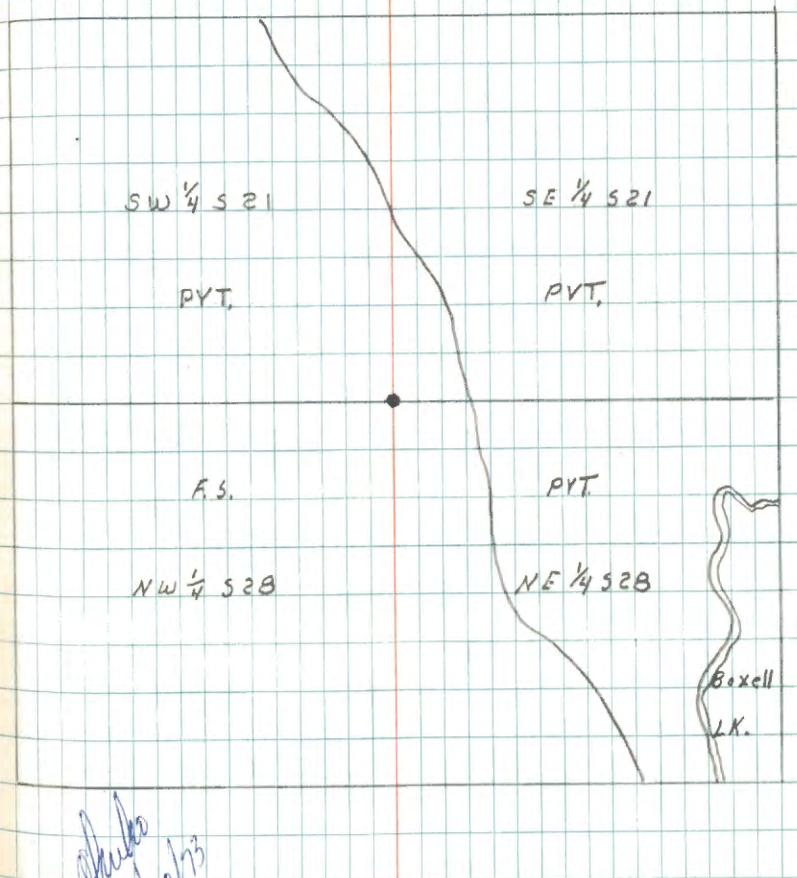 SW 1/4 S 21
SE 1/4 S21
PVT.
PVT.
F.S.
PVT.
NW 1/4 S28
NE 1/4 S28
Boxell
LK.